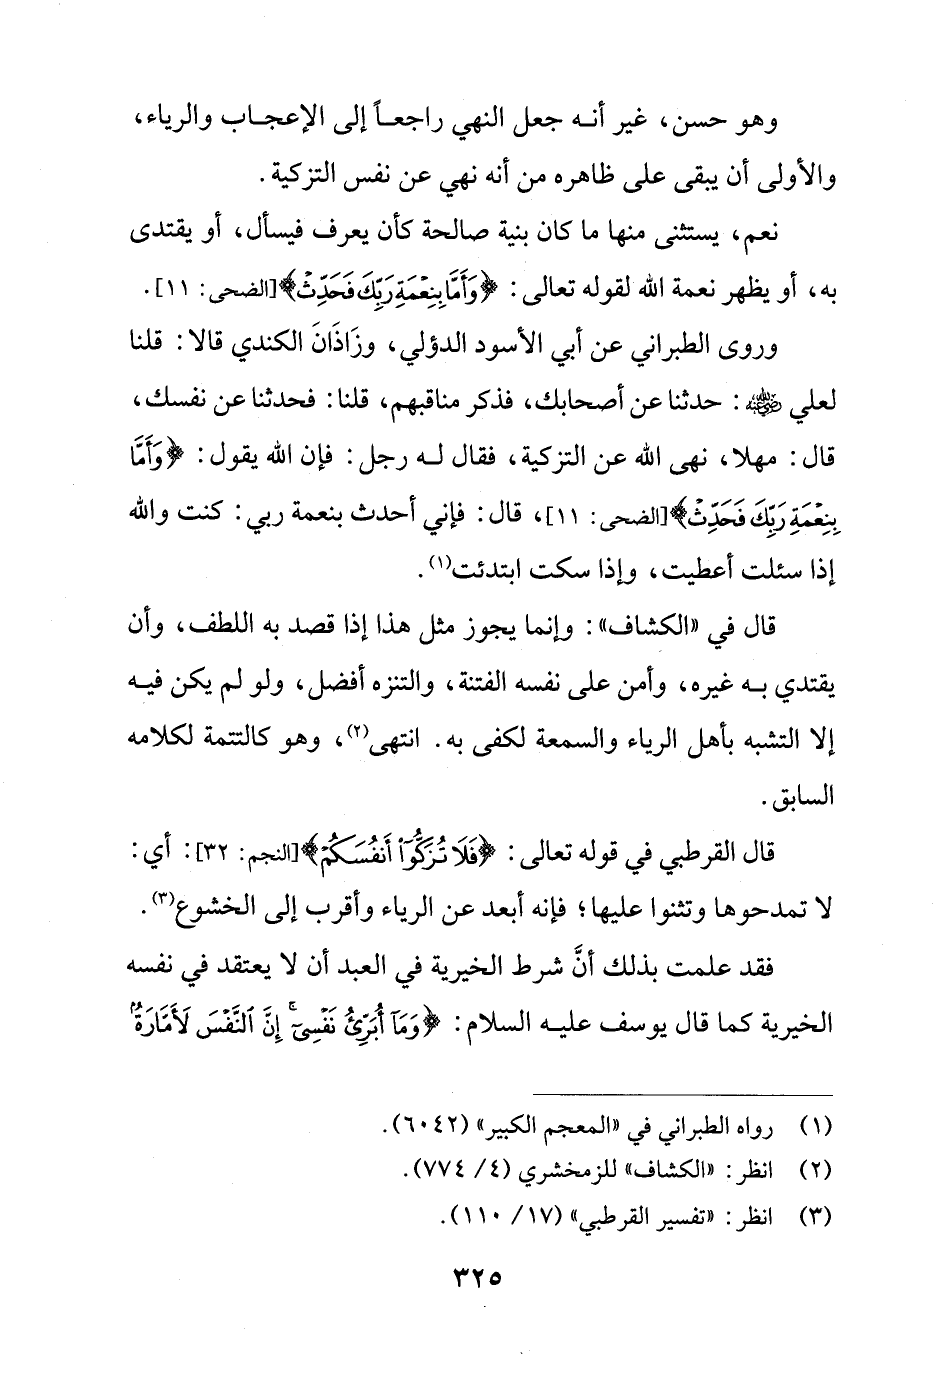 وهو حسن، غير أنه جعل النهي راجعاً إلى الإعجاب والرياء،
والأولى أن يبقى على ظاهره من أنه نهي عن نفس التزكية.
نعم، يستثنى منها ما كان بنية صالحة كأن يعرف فيسأل، أو يقتدى
به، أو يظهر نعمة الله لقوله تعالى: ﴿وَأَمَّا بِنِعْمَةِ رَبِّكَ فَحَدِّثْ﴾[الضحى: ١١].
وروى الطبراني عن أبي الأسود الدؤلي، وزَاذَانَ الكندي قالا: قلنا
لعلي رضي الله عنه: حدثنا عن أصحابك، فذكر مناقبهم، قلنا: فحدثنا عن نفسك،
قال: مهلا، نهى الله عن التزكية، فقال له رجل: فإن الله يقول: ﴿وَأَمَّا
بِنِعْمَةِ رَبِّكَ فَحَدِّثْ﴾[الضحى: ١١]، قال: فإني أحدث بنعمة ربي: كنت والله
إذا سئلت أعطيت، وإذا سكت ابتدئت(١).
قال في «الكشاف»: وإنما يجوز مثل هذا إذا قصد به اللطف، وأن
يقتدي به غيره، وأمن على نفسه الفتنة، والتنزه أفضل، ولو لم يكن فيه
إلا التشبه بأهل الرياء والسمعة لكفى به. انتهى(٢)، وهو كالتتمة لكلامه
السابق.
قال القرطبي في قوله تعالى: ﴿فَلَا تُزَكُّوٓا۟ أَنفُسَكُمْ﴾[النجم: ٣٢]: أي:
لا تمدحوها وتثنوا عليها؛ فإنه أبعد عن الرياء وأقرب إلى الخشوع(٣).
فقد علمت بذلك أنَّ شرط الخيرية في العبد أن لا يعتقد في نفسه
الخيرية كما قال يوسف عليه السلام: ﴿وَمَآ أُبَرِّئُ نَفْسِىٓ ۚ إِنَّ ٱلنَّفْسَ لَأَمَّارَةٌۢ
(١) رواه الطبراني في «المعجم الكبير» (٦٠٤٢).
(٢) انظر: «الكشاف» للزمخشري (٤/ ٧٧٤).
(٣) انظر: «تفسير القرطبي» (١٧/ ١١٠).
٣٢٥